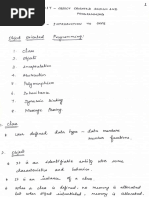 UNIT - OBJECT ORIENTED DESIGN AND
PROGRAMMING
- INTRODUCTION TO OOPS
Object Oriented Programming:
1. Class
2. Object
3. Encapsulation
4. Abstraction
5. Polymorphism
6. Inheritance
7. Dynamic Binding
8. Message Passing
1. Class
User defined data type - data members
member functions.
2. Object
It is an identifiable entity with some
characteristics and behaviour.
It is an instance of a class
When a class is defined, no memory is allocated
but when object